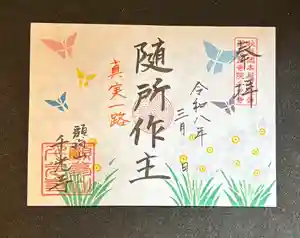 奉拝
令和八年
三月 日
随所作主
真実一路
千光寺